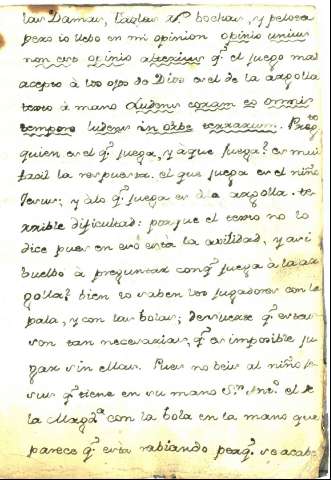 las Damas, tablas xª. bochas, y pelota
pero io llebo en mi opinion opinio unius
non est opinio q.ᵉ el juego mas
acepto à los ojos de Dios es el de la argolla
texto à mano Ludens coram eo omni
tempore ludens in orbe terrarum.
quien es el q.ᵉ juega, y à que juega? es mui
facil la respuesta. el que juega es el niño
Jesus; y à lo q.ᵉ juega es à la argolla. te-
rrible dificultad: porque el texto no lo
dice pues en eso està la abilidad, y asi
buelbo à preguntar con q.ᵉ juega à la ar
golla? bien lo saben los jugadores con la
pala, y con las bolas; q.ᵉ estas
son tan necesarias, q.ᵉ es imposible ju-
gar sin ellas. Pues no beis al niño Je-
sus q.ᵉ tiene en su mano S.ⁿ Ant.º el
la Magd.ª con la bola en la mano que
parece q.ᵉ està rabiando porq.ᵉ se acabe